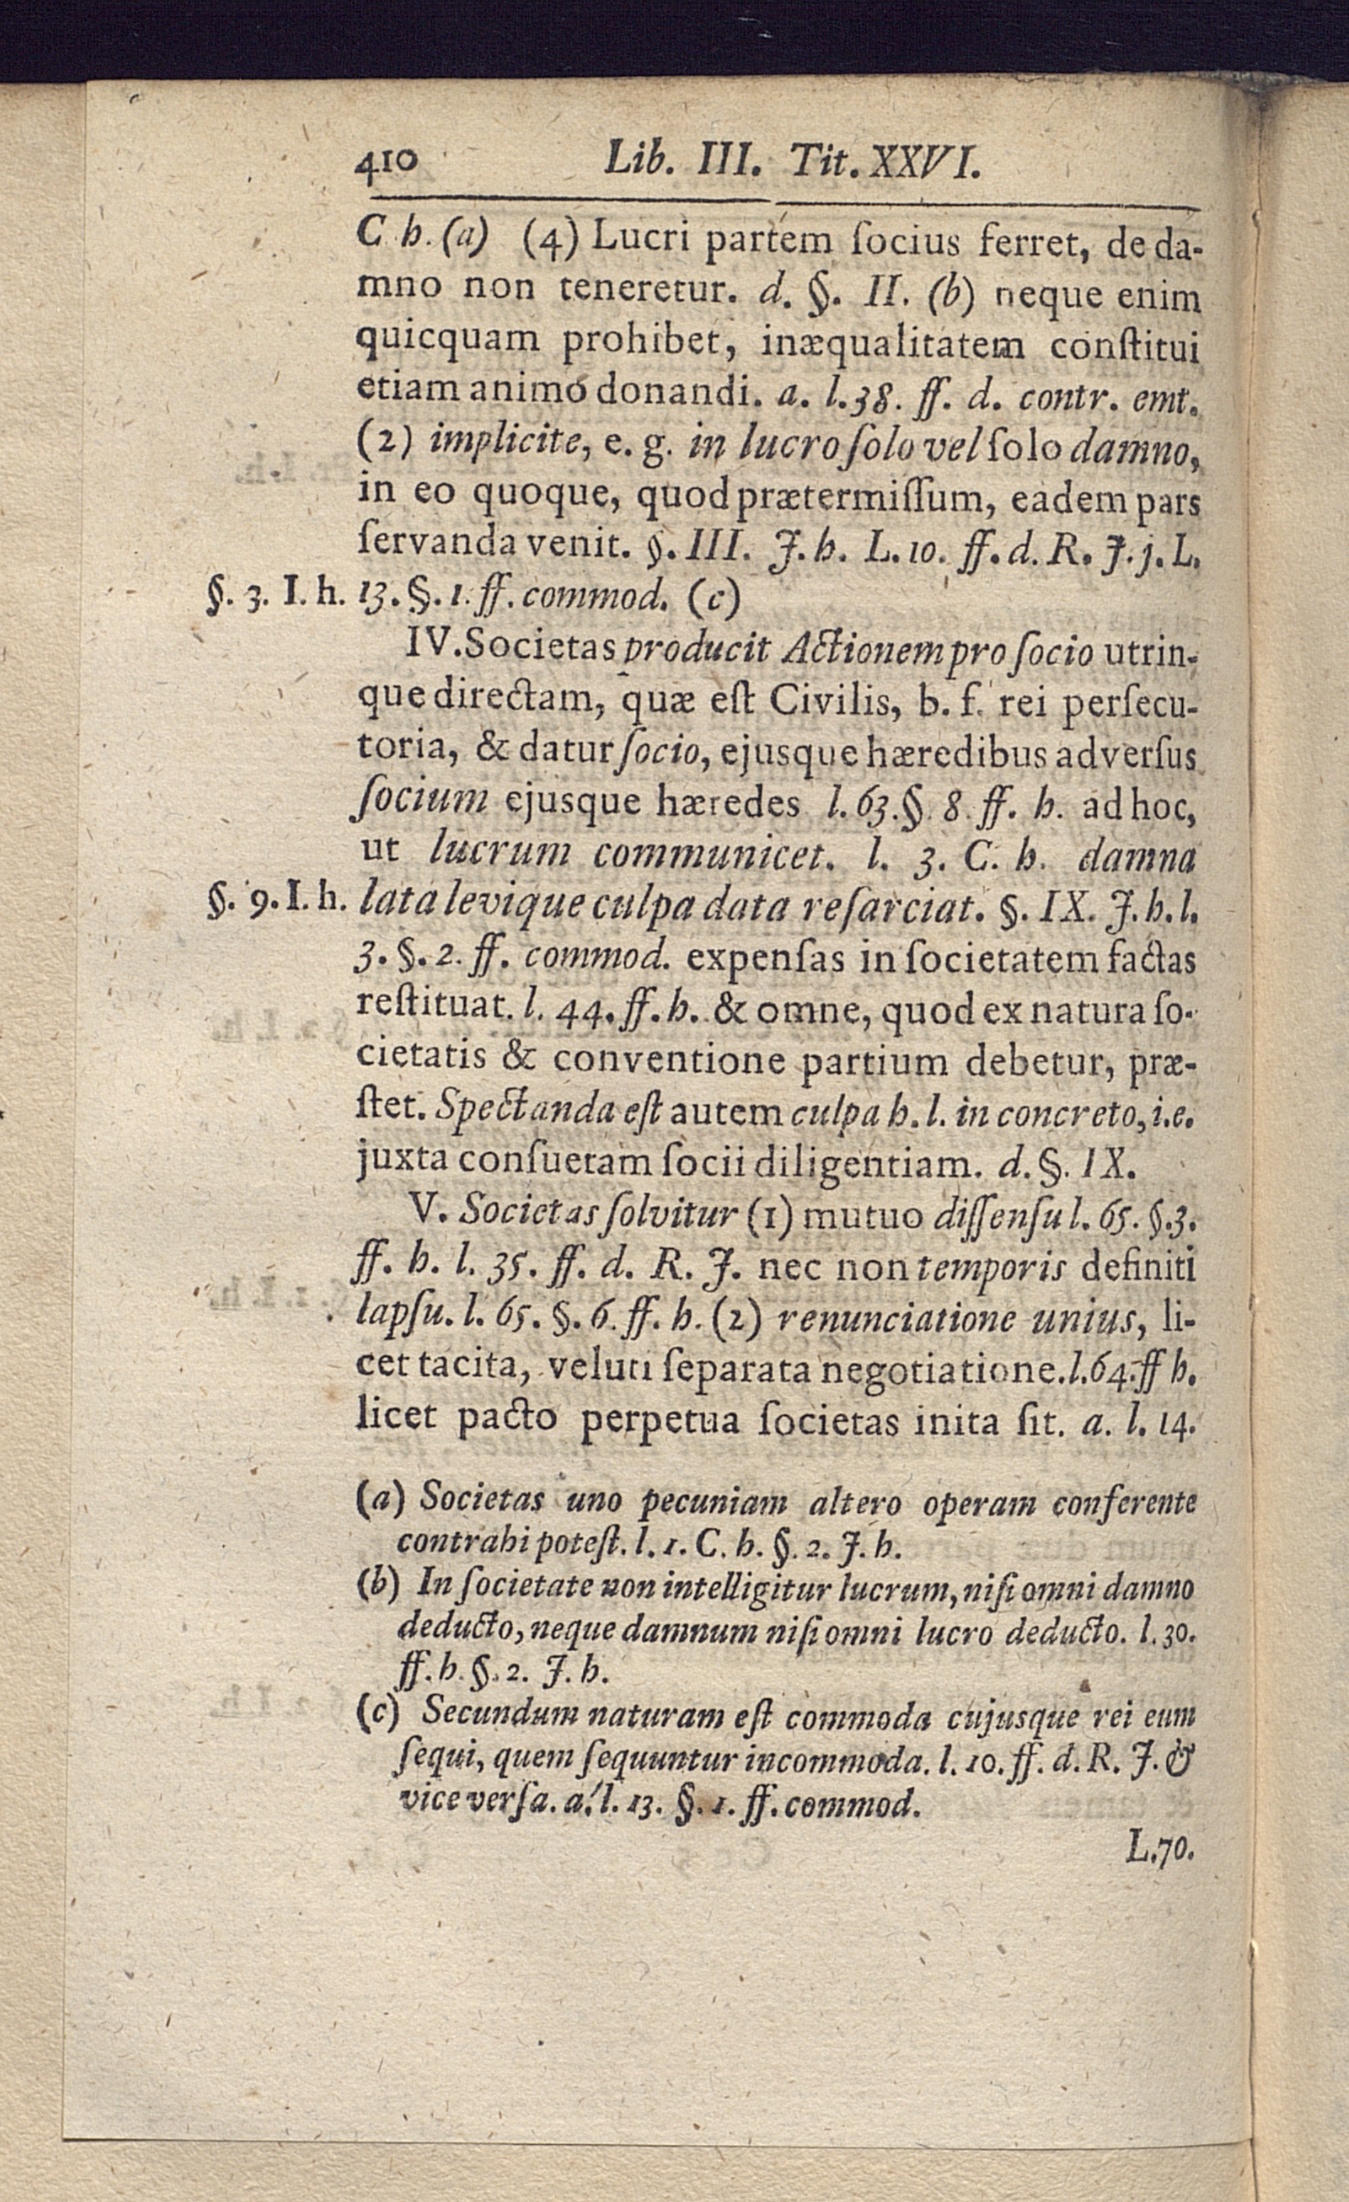 410 Lib. III. Tit. XXVI.
C h. (a) (4) Lucri partem ſocius ferret, de da-
mno non teneretur. d. §. II. (b) neque enim
quicquam prohibet, inæqualitatem conſtitui
etiam animo donandi. a. l. 38. ff. d. contr. emt.
(2) implicite, e. g. in lucro ſolo vel ſolo damno,
in eo quoque, quod prætermiſſum, eadem pars
ſervanda venit. §. III. J. h. L. 10. ff. d. R. J. j. L.
§. 3. I. h. 13. §. 1. ff. commod. (c)
IV. Societas producit Actionem pro ſocio utrin-
que directam, quæ eſt Civilis, b. f. rei perſecu-
toria, & datur ſocio, ejusque hæredibus adverſus
ſocium ejusque hæredes l. 63. §. 8. ff. h. ad hoc,
ut lucrum communicet. l. 3. C. h. damna
§. 9. I. h. lata levique culpa data reſarciat. §. IX. J. h. l.
3. §. 2. ff. commod. expenſas in ſocietatem factas
reſtituat. l. 44. ff. h. & omne, quod ex natura ſo-
cietatis & conventione partium debetur, præ-
ſtet. Spectanda eſt autem culpa h. l. in concreto, i.e.
juxta conſuetam ſocii diligentiam. d. §. IX.
V. Societas ſolvitur (1) mutuo diſſenſu l. 65. §. 3.
ff. h. l. 35. ff. d. R. J. nec non temporis definiti
lapſu. l. 65. §. 6. ff. h. (2) renunciatione unius, li-
cet tacita, veluti ſeparata negotiatione. l. 64. ff h.
licet pacto perpetua ſocietas inita ſit. a. l. 14.
(a) Societas uno pecuniam altero operam conferente
contrahi poteſt. l. 1. C. h. §. 2. J. h.
(b) In ſocietate non intelligitur lucrum, niſi omni damno
deducto, neque damnum niſi omni lucro deducto. l. 30.
ff. h. §. 2. J. h.
(c) Secundum naturam eſt commoda cujusque rei eum
ſequi, quem ſequuntur incommoda. l. 10. ff. d. R. J. &
vice verſa. a. l. 13. §. 1. ff. commod.
L. 70.